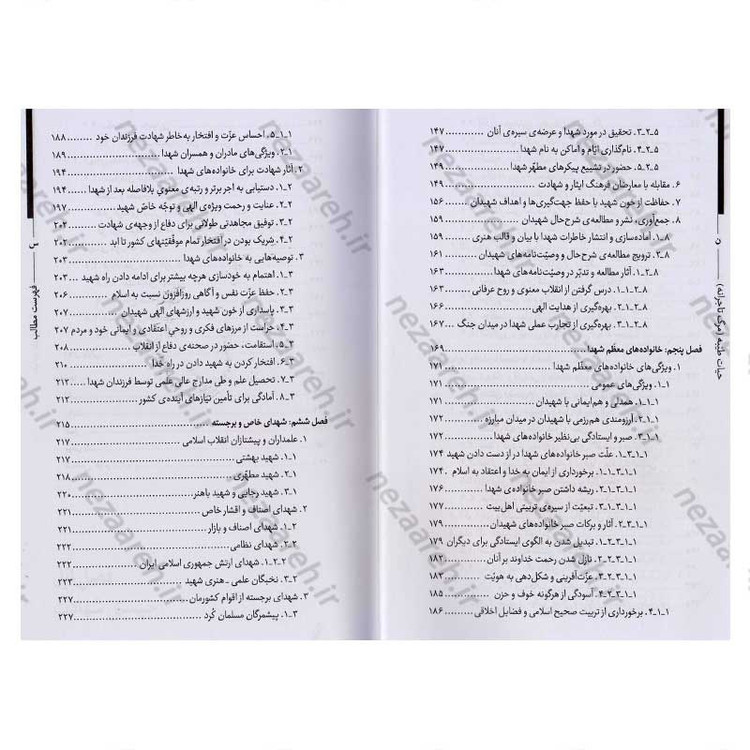 ۳ـ۲ـ۵. تحقیق در مورد شهدا و عرضه‌ی سیره‌ی آنان ............ ۱۴۷
۴ـ۲ـ۵. نام‌گذاری ایّام و اماکن به نام شهدا ............ ۱۴۷
۵ـ۲ـ۵. حضور در تشییع پیکرهای مطهّر شهدا ............ ۱۴۹
۶. مقابله با معارضان فرهنگ ایثار و شهادت ............ ۱۴۹
۷. حفاظت از خون شهید با حفظ جهت‌گیری‌ها و اهداف شهیدان ............ ۱۵۶
۸. جمع‌آوری، نشر و مطالعه‌ی شرح‌حال شهیدان ............ ۱۵۹
۱ـ۸. آماده‌سازی و انتشار خاطرات شهدا با بیان و قالب هنری ............ ۱۵۹
۲ـ۸. ترویج مطالعه‌ی شرح‌حال و وصیّت‌نامه‌های شهیدان ............ ۱۶۱
۱ـ۲ـ۸. آثار مطالعه و تدبّر در وصیّت‌نامه‌های شهدا ............ ۱۶۳
۱ـ۱ـ۲ـ۸. درس گرفتن از انقلاب معنوی و روح عرفانی ............ ۱۶۳
۲ـ۱ـ۲ـ۸. بهره‌گیری از هدایت الهی ............ ۱۶۶
۳ـ۱ـ۲ـ۸. بهره‌گیری از تجارب عملی شهدا در میدان جنگ ............ ۱۶۷
فصل پنجم: خانواده‌های معظّم شهدا ............ ۱۶۹
۱. ویژگی‌های خانواده‌های معظّم شهدا ............ ۱۷۱
۱ـ۱. ویژگی‌های عمومی ............ ۱۷۱
۱ـ۱ـ۱. همدلی و هم‌ایمانی با شهیدان ............ ۱۷۱
۲ـ۱ـ۱. آرزومندی هم‌رزمی با شهیدان در میدان مبارزه ............ ۱۷۲
۳ـ۱ـ۱. صبر و ایستادگی بی‌نظیر خانواده‌های شهدا ............ ۱۷۲
۱ـ۳ـ۱ـ۱. علّت صبر خانواده‌های شهدا در از دست دادن شهید ۱۷۴
۱ـ۱ـ۳ـ۱ـ۱. برخورداری از ایمان به خدا و اعتقاد به اسلام . ۱۷۴
۲ـ۱ـ۳ـ۱ـ۱. ریشه داشتن صبر خانواده‌ی شهدا ............ ۱۷۶
۳ـ۱ـ۳ـ۱ـ۱. تبعیّت از سیره‌ی تربیتی اهل‌بیت ............ ۱۷۷
۲ـ۳ـ۱ـ۱. آثار و برکات صبر خانواده‌های شهیدان ............ ۱۷۹
۱ـ۲ـ۳ـ۱ـ۱. تبدیل شدن به الگوی ایستادگی برای دیگران ۱۷۹
۲ـ۲ـ۳ـ۱ـ۱. نازل شدن رحمت خداوند بر آنان ............ ۱۸۲
۳ـ۲ـ۳ـ۱ـ۱. عزّت‌آفرینی و شکل‌دهی به هویّت ............ ۱۸۳
۴ـ۲ـ۳ـ۱ـ۱. آسودگی از هرگونه خوف و حزن ............ ۱۸۵
۴ـ۱ـ۱. برخورداری از تربیت صحیح اسلامی و فضایل اخلاقی . ۱۸۶
حیات طیّبه (مرگ تاجرانه)
۵ـ۱ـ۱. احساس عزّت و افتخار به‌خاطر شهادت فرزندان خود ........ ۱۸۸
۲ـ۱. ویژگی‌های مادران و همسران شهدا ............ ۱۸۹
۲. آثار شهادت برای خانواده‌های شهدا ............ ۱۹۴
۱ـ۲. دستیابی به اجر برتر و رتبه‌ی معنوی بلافاصله بعد از شهدا ..... ۱۹۴
۲ـ۲. عنایت و رحمت ویژه‌ی الهی و توجّه خاصّ شهید ............ ۱۹۷
۳ـ۲. توفیق مجاهدتی طولانی برای دفاع از وجهه‌ی شهادت ........ ۲۰۲
۴ـ۲. شریک بودن در افتخار تمام موفّقیّتهای کشور تا ابد ............ ۲۰۲
۳. توصیه‌هایی به خانواده‌های شهدا ............ ۲۰۳
۱ـ۳. اهتمام به خودسازی هرچه بیشتر برای ادامه دادن راه شهید ... ۲۰۳
۲ـ۳. حفظ عزّت نفس و آگاهی روزافزون نسبت به اسلام ............ ۲۰۶
۳ـ۳. پاسداری از خون شهید و ارزشهای الهی شهیدان ............ ۲۰۷
۴ـ۳. حراست از مرزهای فکری و روحیِ اعتقادی و ایمانی خود و مردم ۲۰۷
۵ـ۳. استقامت، حضور در صحنه‌ی دفاع از انقلاب ............ ۲۰۸
۶ـ۳. افتخار کردن به شهید دادن در راه خدا ............ ۲۱۰
۷ـ۳. تحصیل علم و طی مدارج عالی علمی توسط فرزندان شهدا .. ۲۱۲
۸ـ۳. آمادگی برای تأمین نیازهای آینده‌ی کشور ............ ۲۱۲
فصل ششم: شهدای خاص و برجسته ............ ۲۱۵
۱. علمداران و پیشتازان انقلاب اسلامی ............ ۲۱۷
۱ـ۱. شهید بهشتی ............ ۲۱۷
۲ـ۱. شهید مطهّری ............ ۲۱۸
۳ـ۱. شهید رجایی و شهید باهنر ............ ۲۲۰
۲. شهدای اصناف و اقشار خاص ............ ۲۲۱
۱ـ۲. شهدای اصناف و بازار ............ ۲۲۱
۲ـ۲. شهدای نظامی ............ ۲۲۲
۱ـ۲ـ۲. شهدای ارتش جمهوری اسلامی ایران ............ ۲۲۲
۳ـ۲. نخبگان علمی ـ هنری شهید ............ ۲۲۳
۳. شهدای برجسته از اقوام کشورمان ............ ۲۲۷
۱ـ۳. پیشمرگان مسلمان کُرد ............ ۲۲۷
فهرست مطالب
nezaareh.ir